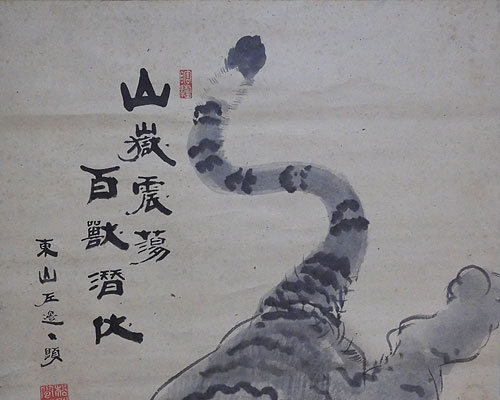 山嶽震蕩
百獸潛伏
東山左邊、題